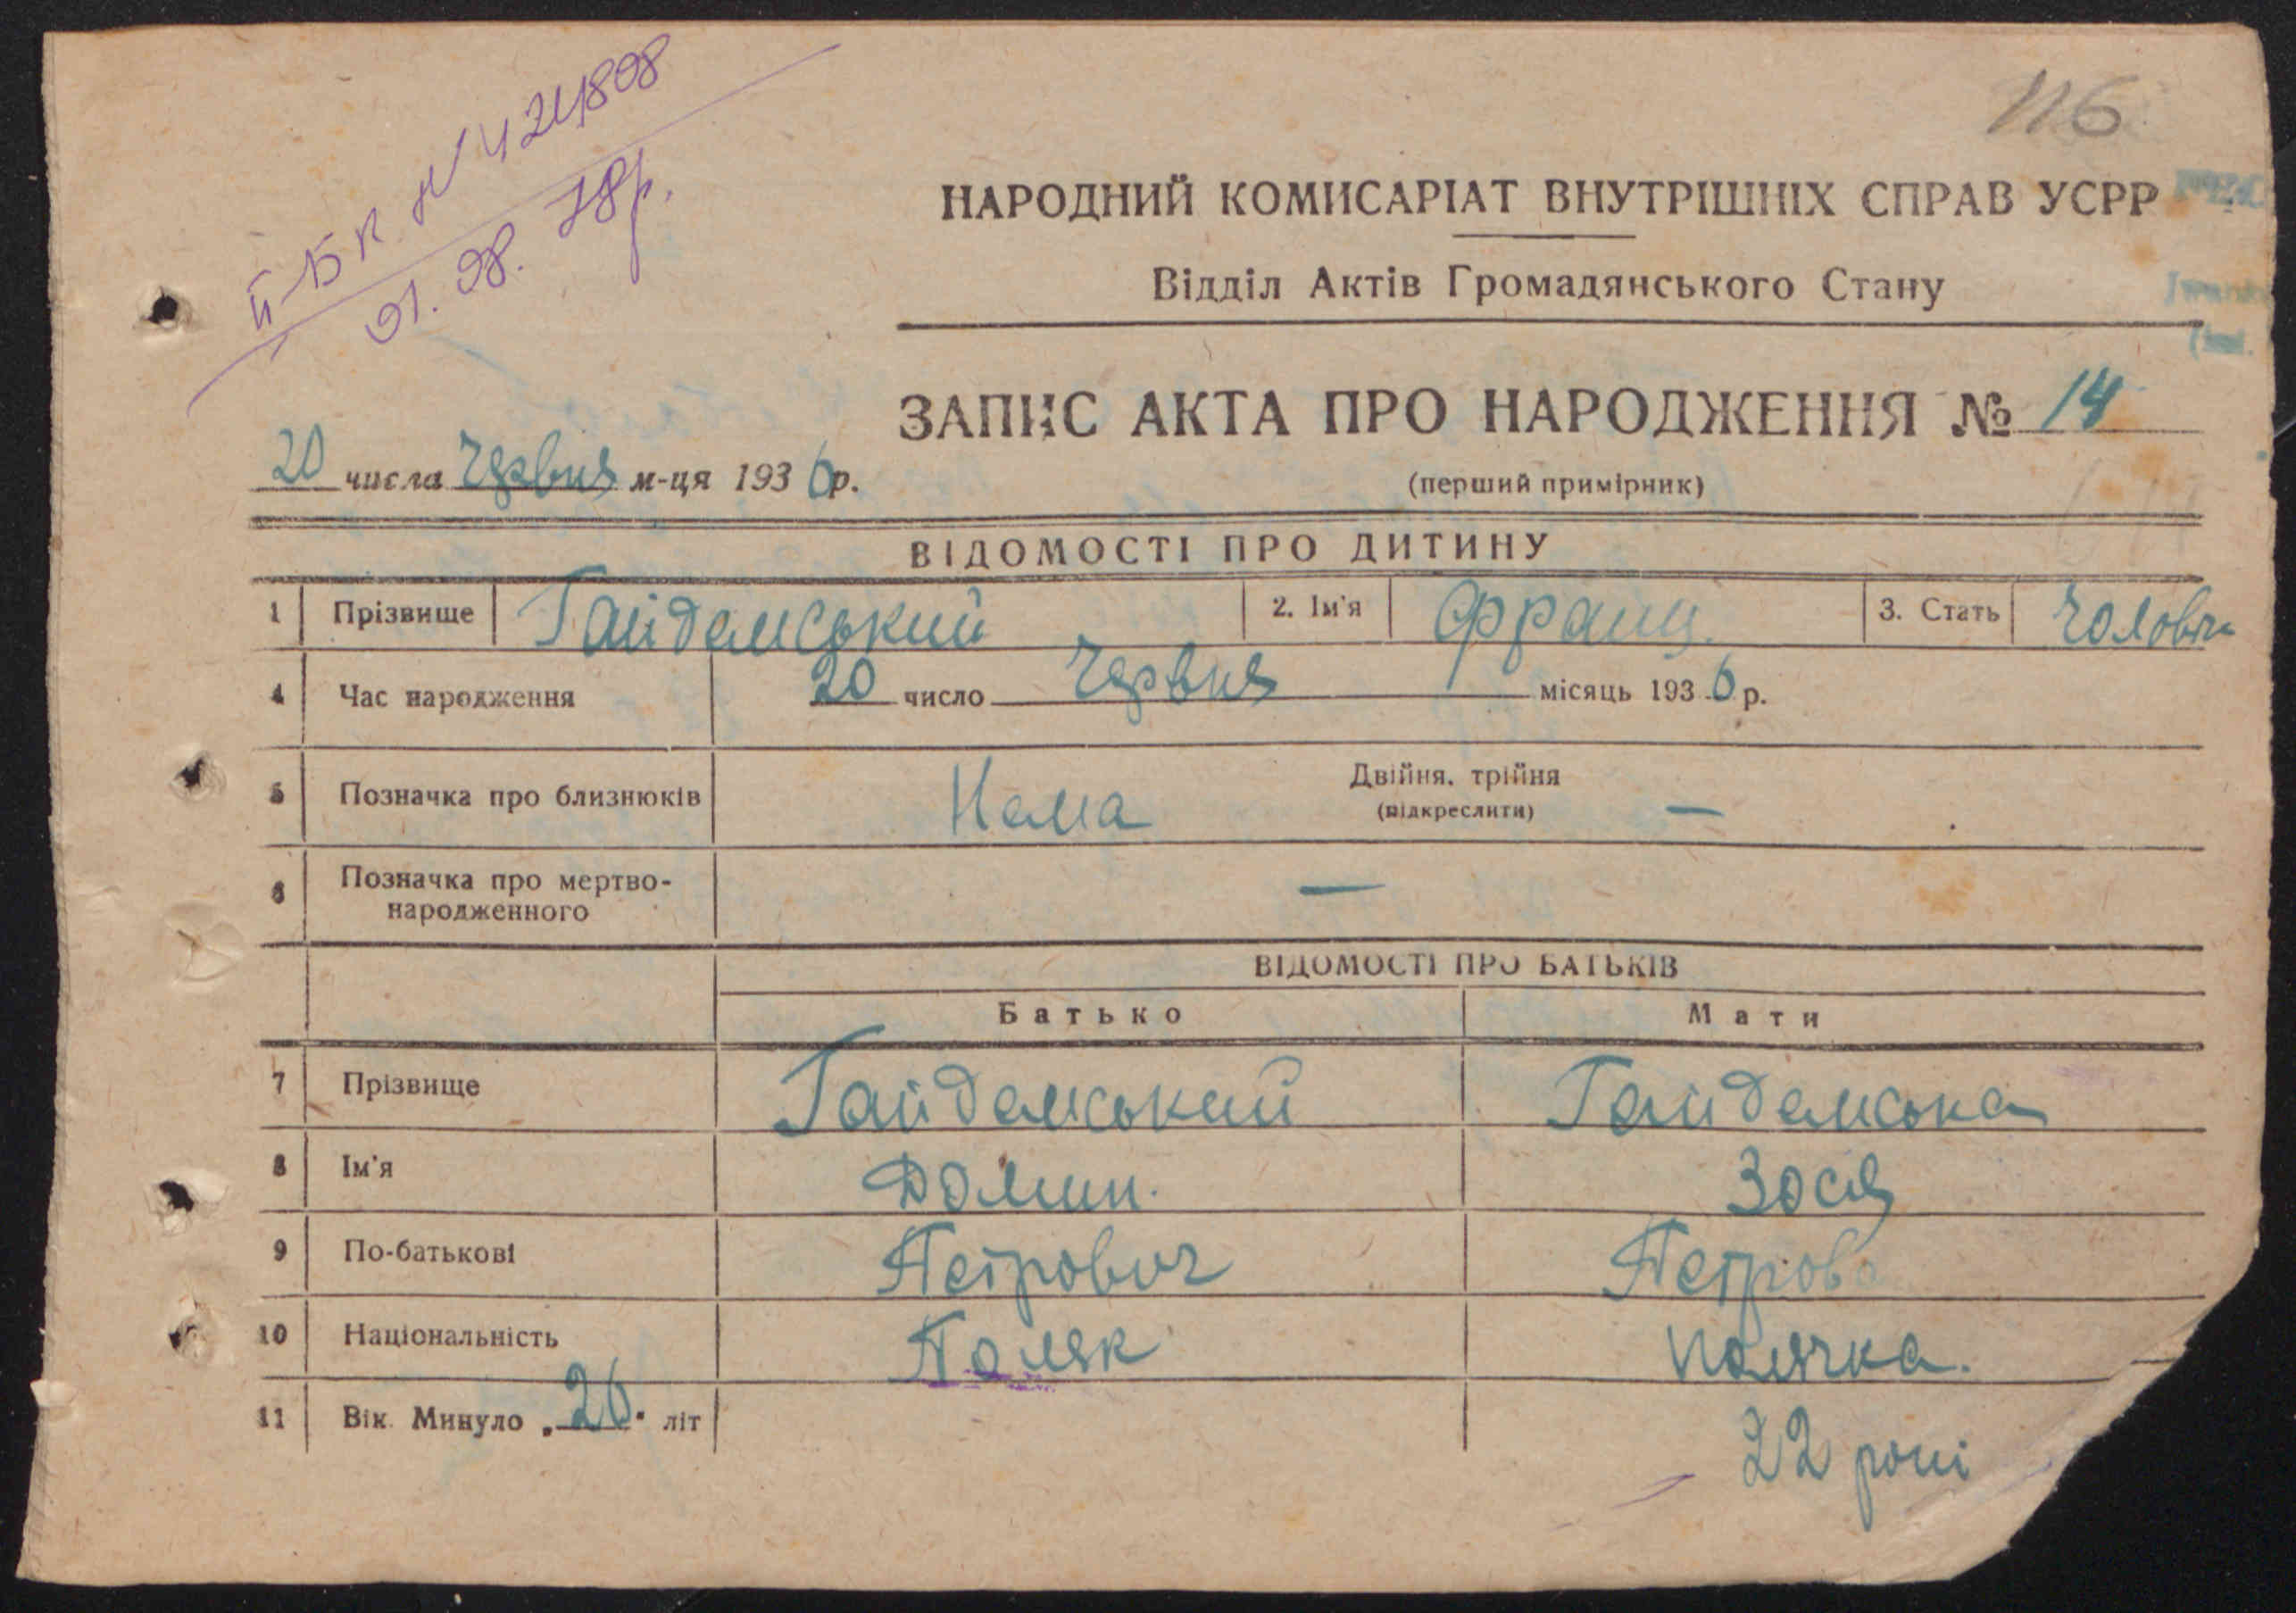 116
ІІ-БК № 424808
01.08.78р.
НАРОДНИЙ КОМИСАРІАТ ВНУТРІШНІХ СПРАВ УСРР
Відділ Актів Громадянського Стану
ЗАПИС АКТА ПРО НАРОДЖЕННЯ № 14
20 числа Червня м-ця 1936 р.
(перший примірник)
ВІДОМОСТІ ПРО ДИТИНУ
1 Прізвище Гайдамський 2. Ім'я Франц. 3. Стать Чолов
4 Час народження 20 число Червня місяць 1936 р.
5 Позначка про близнюків Нема Двійня, трійня (підкреслити) —
6 Позначка про мертво-
народженного —
ВІДОМОСТІ ПРО БАТЬКІВ
Батько Мати
7 Прізвище Гайдамський Гайдамська
8 Ім'я Домин. Зося
9 По-батькові Петрович Петрова
10 Національність Поляк полячка.
11 Вік. Минуло „26" літ 22 роки